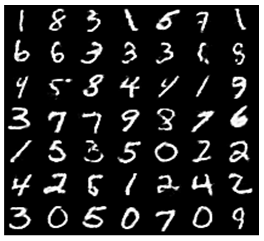 1 8 3 1 6 7 1
6 6 3 3 3 8
4 5 8 4 4 1 9
3 7 7 9 8 7 6
1 5 3 5 0 2 2
4 2 5 1 2 4 2
3 0 5 0 7 0 9